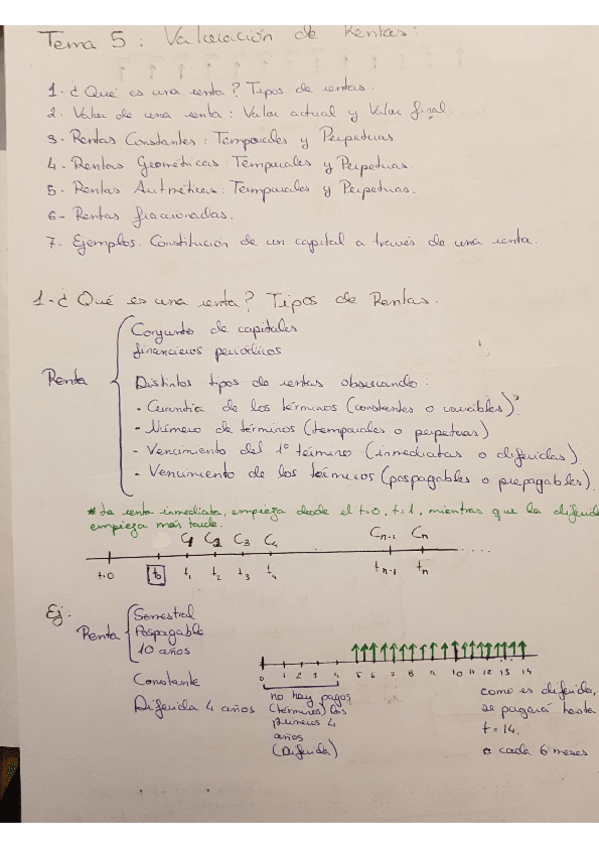 Tema 5: Valoración de Rentas:
1- ¿Qué es una renta? Tipos de rentas.
2- Valor de una renta: Valor actual y Valor final
3- Rentas Constantes: Temporales y Perpetuas
4- Rentas Geométricas: Temporales y Perpetuas.
5- Rentas Aritméticas: Temporales y Perpetuas.
6- Rentas fraccionadas.
7- Ejemplos. Constitución de un capital a través de una renta.
1- ¿Qué es una renta? Tipos de Rentas.
Conjunto de capitales
financieros periódicos
Renta
Distintos tipos de rentas observando:
- Cuantía de los términos (constantes o variables)
- Número de términos (temporales o perpetuas)
- Vencimiento del 1º término (inmediatas o diferidas)
- Vencimiento de los términos (pospagables o prepagables).
* La renta inmediata, empieza desde el t=0, t=1, mientras que la diferida
empieza más tarde.
C1 C2 C3 C4 Cn-1 Cn
t=0 t0 t1 t2 t3 t4 tn-1 tn
Ej:
Renta
Semestral
Pospagable
10 años
Constante
Diferida 4 años
0 1 2 3 4 5 6 7 8 9 10 11 12 13 14
no hay pagos
(términos) los
primeros 4
años
(Diferida)
como es diferida,
se pagará hasta
t=14.
a cada 6 meses